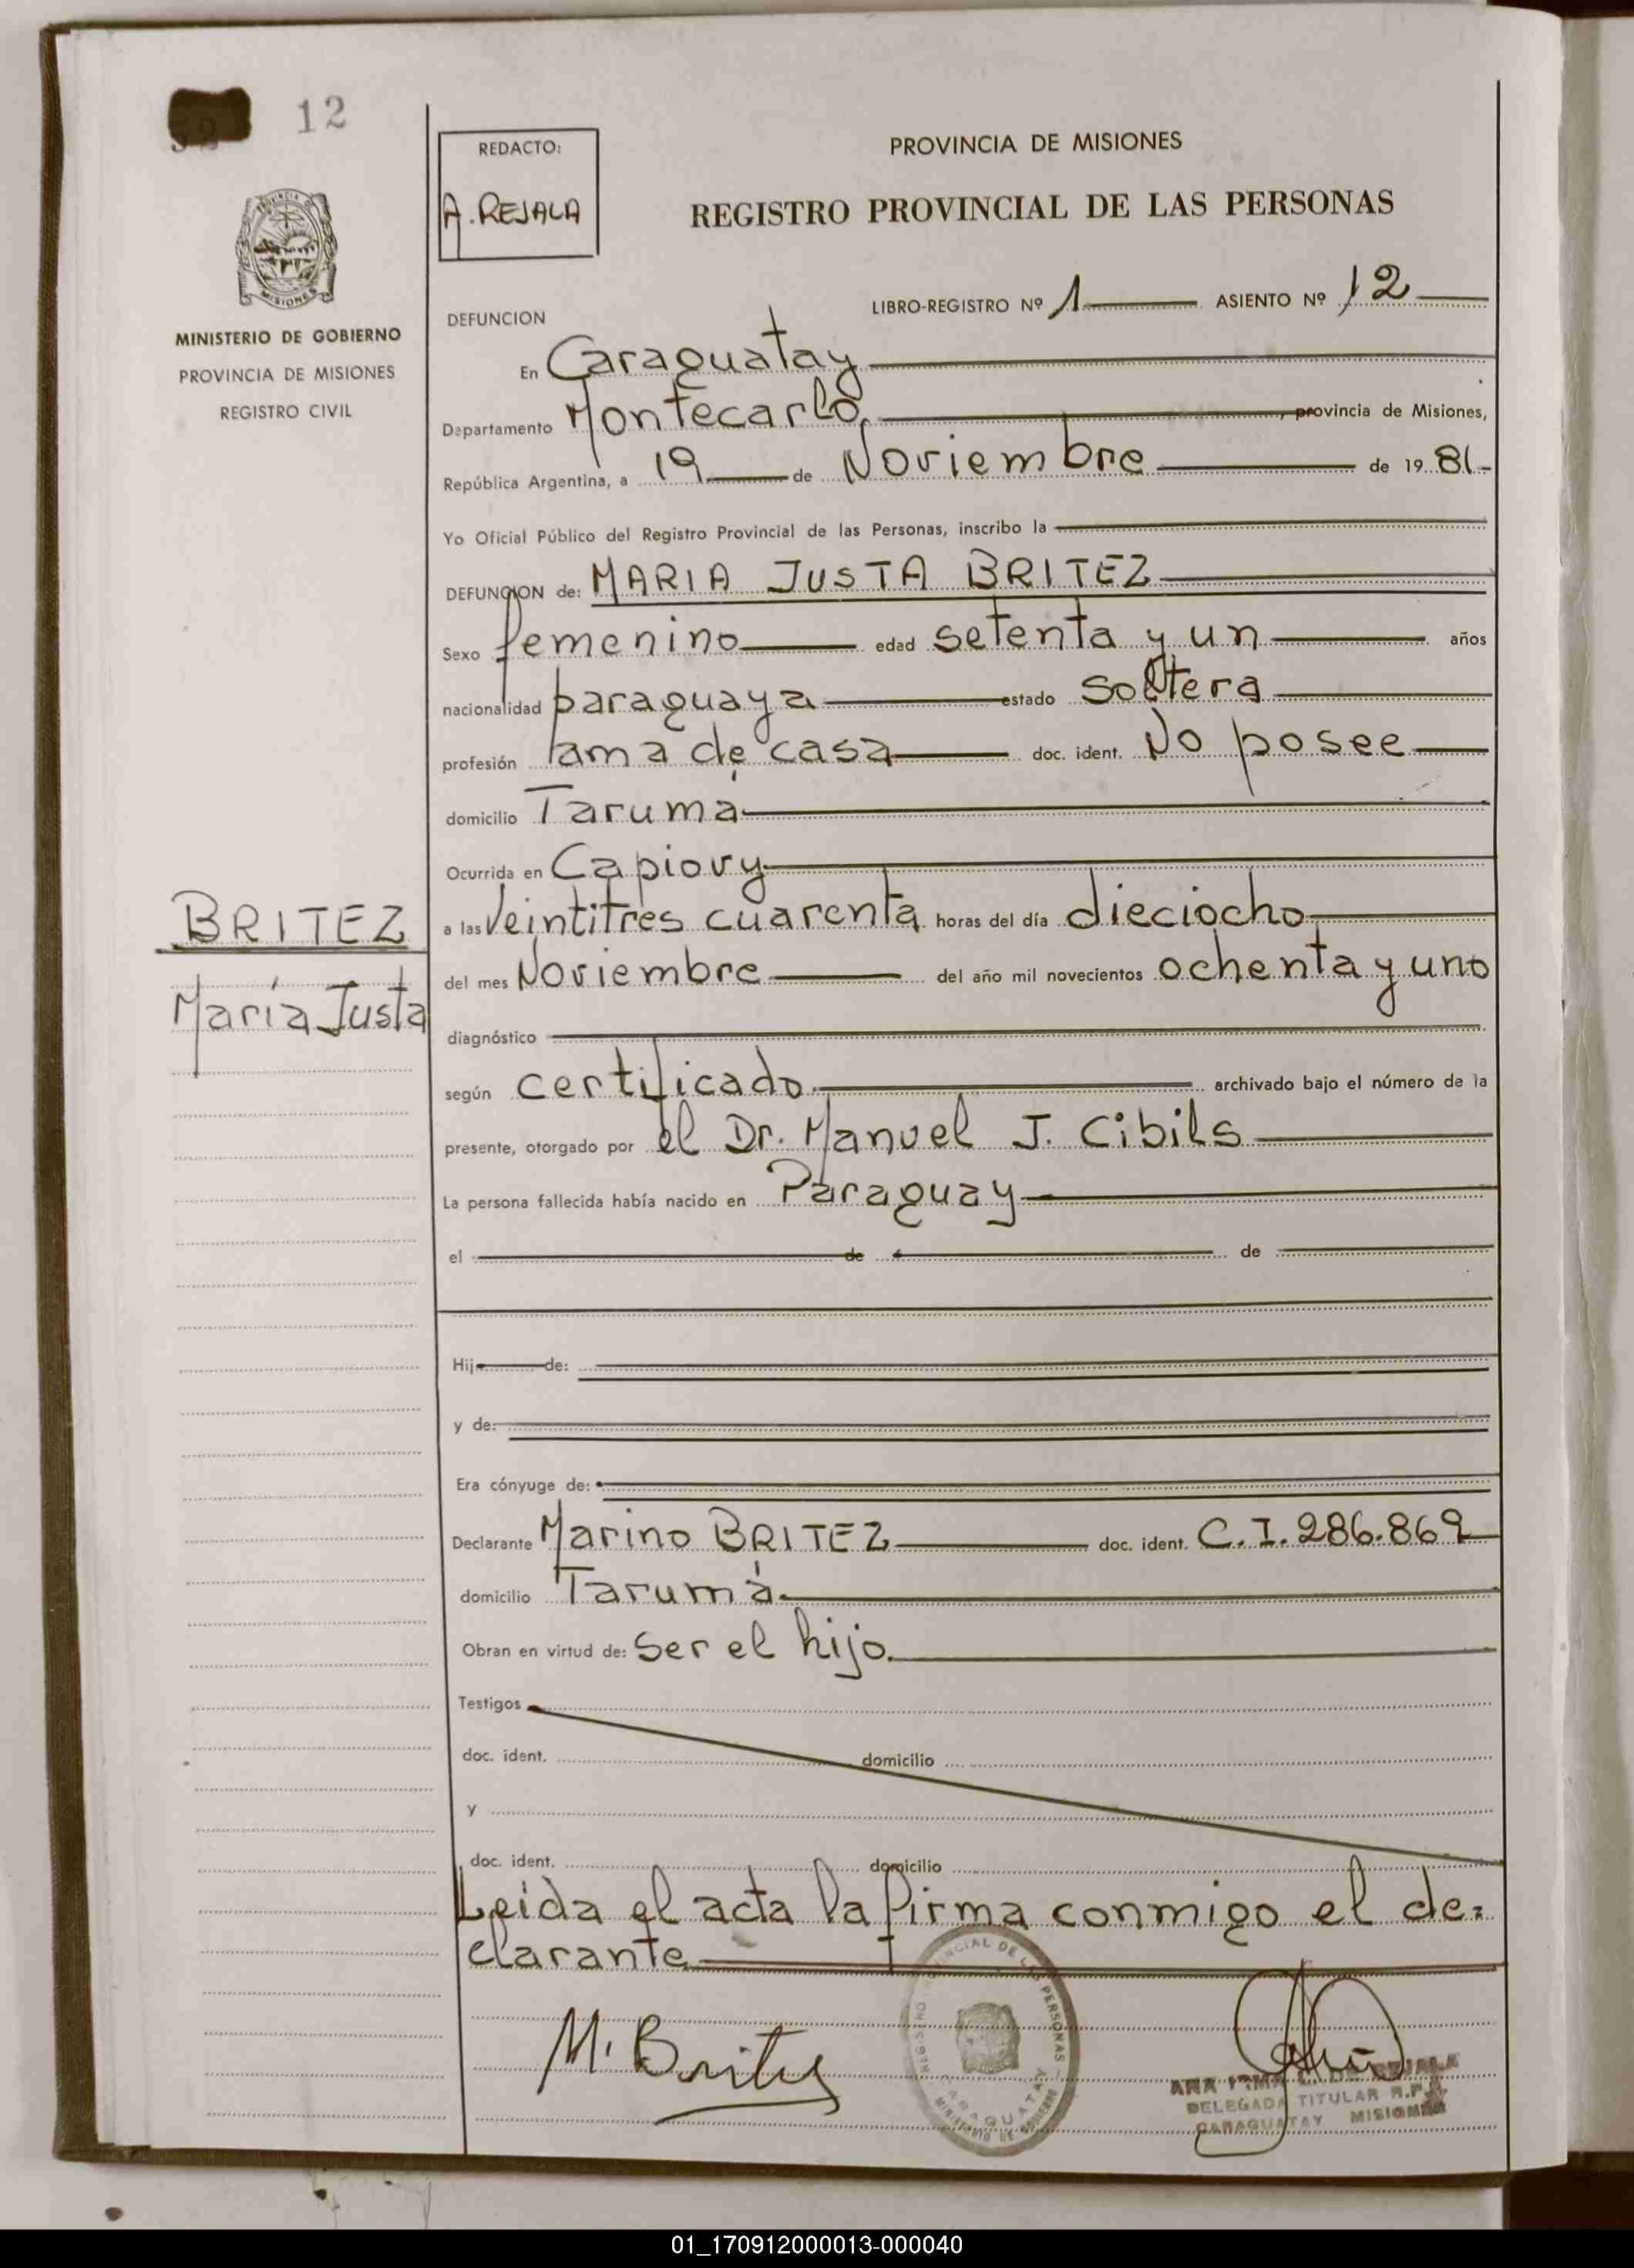 12
REDACTO:
A. REJALA
PROVINCIA DE MISIONES
REGISTRO PROVINCIAL DE LAS PERSONAS
MINISTERIO DE GOBIERNO
PROVINCIA DE MISIONES
REGISTRO CIVIL
DEFUNCION
LIBRO-REGISTRO Nº 1 ASIENTO Nº 12
En Caraguatay
Departamento Montecarlo, provincia de Misiones,
República Argentina, a 19 de Noviembre de 1981-
Yo Oficial Público del Registro Provincial de las Personas, inscribo la
DEFUNCION de: MARIA JUSTA BRITEZ
Sexo femenino edad setenta y un años
nacionalidad paraguaya estado soltera
profesión ama de casa doc. ident. No posee
domicilio Taruma
Ocurrida en Capiovy
BRITEZ
María Justa
a las Veintitres cuarenta horas del día dieciocho
del mes Noviembre del año mil novecientos ochenta y uno
diagnóstico
según certificado archivado bajo el número de la
presente, otorgado por el Dr. Manuel J. Cibils
La persona fallecida había nacido en Paraguay
el de de
Hij de:
y de:
Era cónyuge de:
Declarante Marino BRITEZ doc. ident. C.I. 286.869
domicilio Tarumá
Obran en virtud de: ser el hijo.
Testigos
doc. ident. domicilio
y
doc. ident. domicilio
Leida el acta la firma conmigo el de=
clarante
M. Britez
DELEGADA TITULAR R.P.
CARAGUATAY MISIONES
01_170912000013-000040